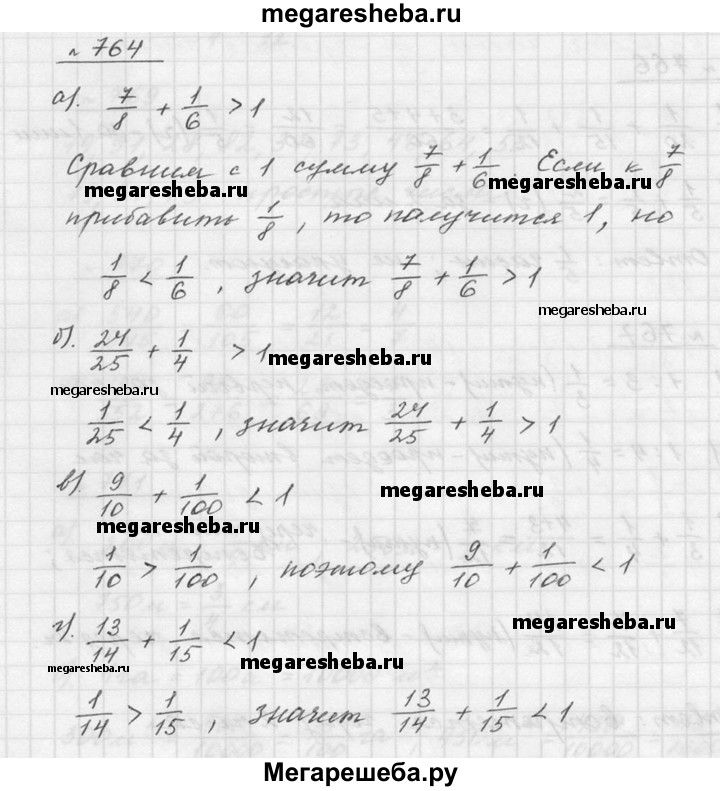 megaresheba.ru
№ 764
а). 7/8 + 1/6 > 1
Сравним с 1 сумму 7/8 + 1/6. Если к 7/8
megaresheba.ru megaresheba.ru
прибавить 1/8, то получится 1, но
1/8 < 1/6, значит 7/8 + 1/6 > 1
megaresheba.ru
б). 24/25 + 1/4 > 1
megaresheba.ru
megaresheba.ru
1/25 < 1/4, значит 24/25 + 1/4 > 1
в). 9/10 + 1/100 < 1
megaresheba.ru
megaresheba.ru
1/10 > 1/100, поэтому 9/10 + 1/100 < 1
megaresheba.ru
г). 13/14 + 1/15 < 1
megaresheba.ru
megaresheba.ru
1/14 > 1/15, значит 13/14 + 1/15 < 1
Мегарешеба.ру